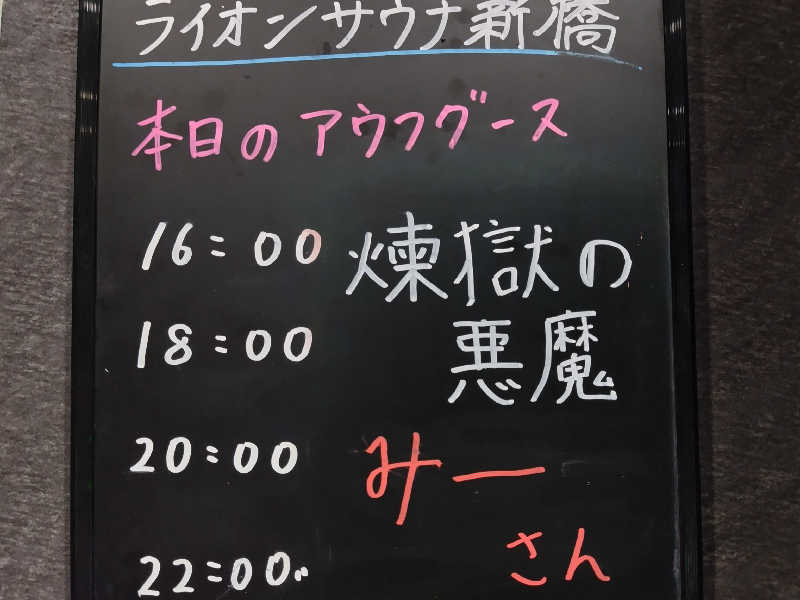 ライオンサウナ新橋
本日のアウフグース
16:00 煉獄の
18:00 悪魔
20:00 みー
22:00 さん